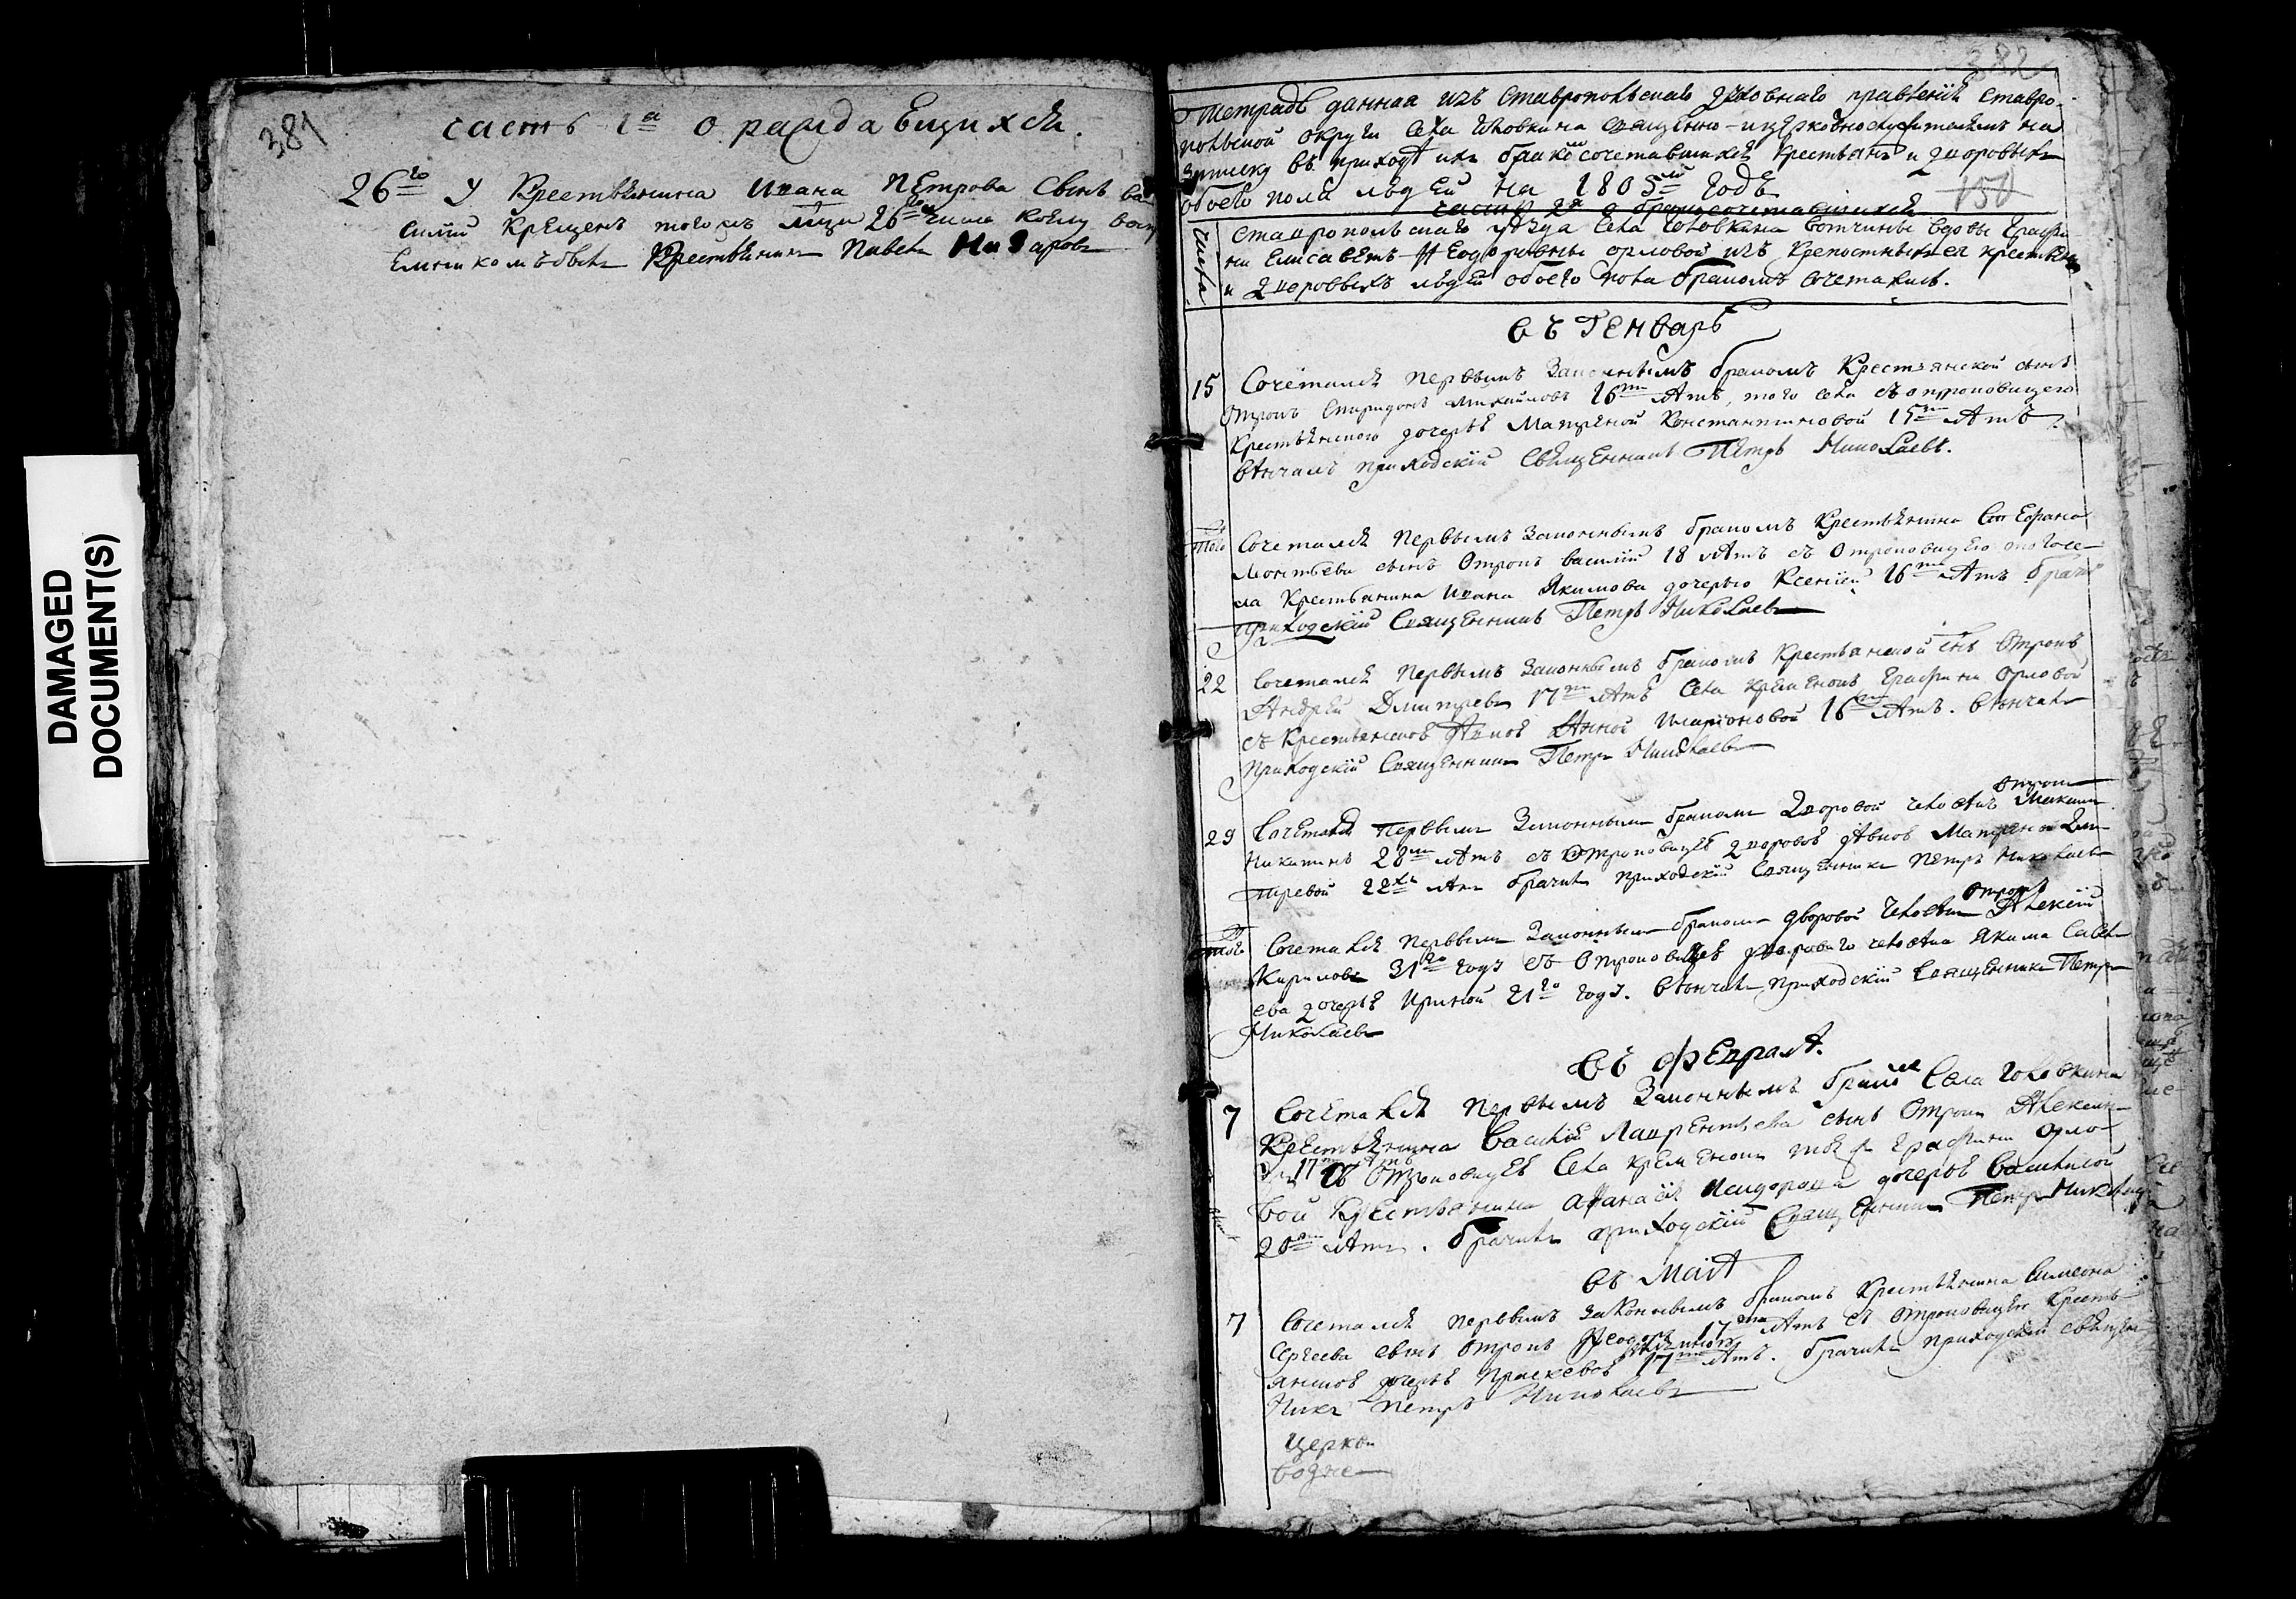 DAMAGED
DOCUMENT(S)
381
часть 1а о раждающихся.
26го у Крестьянина Ивана Петрова сынъ ва
силий крещенъ того жъ 26го числа коему во
емникомъ былъ Крестьянинъ Павелъ Назаровъ
382
Тетрадь данная изъ Ставропольскаго духовнаго правления Ставро-
польской округи села Головкина священно-и церковнослужителямъ на
записку въ приходѣ ихъ бракомъ сочетавшихся крестьянъ и дворовыхъ
обоего пола людей на 1805й годъ
151
часть 2я о бракосочетавшихся
числа
Ставропольскаго уѣзда села Головкина вотчины вдовы Графи
ни Елисаветъ Ѳеодоровны Орловой изъ крепостныхъ ея крестьянъ
и дворовыхъ людей обоего пола бракомъ сочетались.
въ Генварѣ
15 Сочетался первымъ законнымъ бракомъ Крестьянской сынъ
Отрокъ Спиридонъ Михайловъ 16ти лѣтъ, того села съ отроковицею
Крестьянскою дочерью Матреной Константиновой 15ти лѣтъ
вѣнчалъ приходский священникъ Петръ Николаевъ.
того Сочетался первымъ законнымъ бракомъ Крестьянина Стефана
Леонтьева сынъ Отрокъ василий 18 лѣтъ съ Отроковицею того се-
ла Крестьянина Ивана Якимова дочерью Ксенией 16ти лѣтъ брачи
приходский Священникъ Петръ Николаевъ
22 Сочетался первымъ законнымъ бракомъ Крестьянской снъ Отрокъ
Андрей Дмитревъ 17ти лѣтъ села Кременокъ Графини Орловой
съ Крестьянской дѣвкой Анной Иларионовой 16ти лѣтъ. вѣнчалъ
Приходский Священникъ Петръ Николаевъ
отрокъ
29 Сочетался первымъ законнымъ бракомъ Дворовой человѣкъ Михаилъ
Никитинъ 28ми лѣтъ съ Отроковицей дворовой дѣвкой Матреной Дми
тревой 22хъ лѣтъ брачилъ приходский Священникъ Петръ Николаевъ
отрокъ
того Сочетался первымъ законнымъ бракомъ дворовой человѣкъ Алексий
Кириловъ 31го году съ Отроковицей двороваго человѣка Якима Савель
ева дочерью Ириной 21го году. вѣнчалъ приходский Священникъ Петръ
Николаевъ
въ Февралѣ.
7 Сочетался первымъ законнымъ бракомъ Села Головкина
Крестьянина Василий Лаврентьева сынъ Отрокъ Алексан-
17ти лѣтъ съ Отроковицей Села Кременокъ той ж Графини Орло-
вой Крестьянина Афанасия Исидорова дочерью Василисой
20ти лѣтъ. брачилъ приходский Священникъ Петръ Николаевъ
въ Маиѣ
7 Сочетался первымъ законнымъ бракомъ Крестьянина Симеона
Сергеева сынъ Отрокъ Ѳеодоръ 17ти лѣтъ съ Отроковицею Кресть
янской дочерью Праскевой 17ти лѣтъ. брачилъ приходский священ
никъ Петръ Николаевъ
Церкви